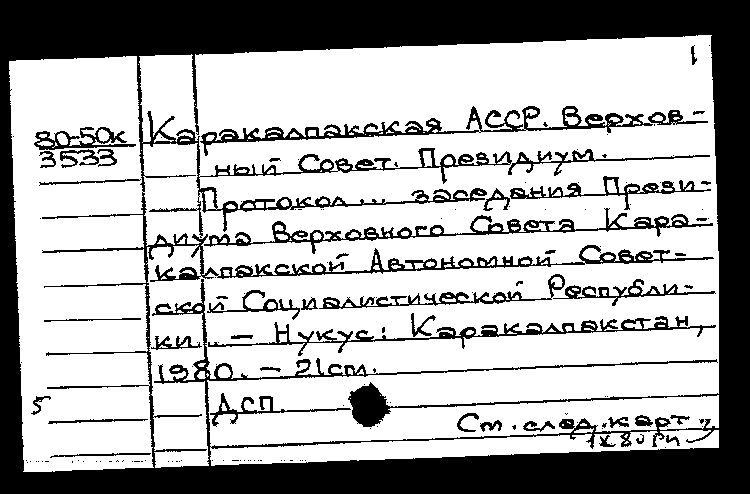 1
80-50к
3533
Каракалпакская АССР. Верхов-
ный Совет. Президиум.
Протокол... заседания Прези-
диума Верховного Совета Кара-
калпакской Автономной Совет-
ской Социалистической Республи-
ки... — Нукус: Каракалпакстан,
1980. — 21см.
5
ДСП.
Ст. след. карт.